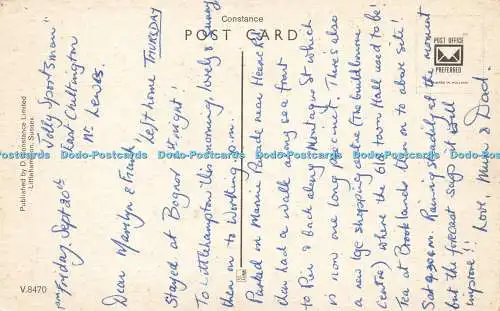 Constance
POST CARD
POST OFFICE
PREFERRED
Published by D. Constance Limited
Littlehampton, Sussex.
V.8470
"Jolly Sportsman"
East Chiltington
Nr. Lewes.
pm Friday, Sept 20th
Dear Marilyn & Frank,
Left home THURSDAY
Stayed at Bognor tonight!
To Littlehampton this morning, lovely & sunny
then on to Worthing pm.
Parked on Marine Parade near Heene Rd
then had a walk along sea front
to Pier & back along Montague St which
is now one long precinct. There's also
a new lge shopping centre (the Guildbourne
Centre) where the old town Hall used to be!
Tea at Brooklands then on to above site!
Sat 9.30 a.m. Raining steadily at the moment
but the forecast says it will
improve!! Love, Mum & Dad.
Domedo-Postcards